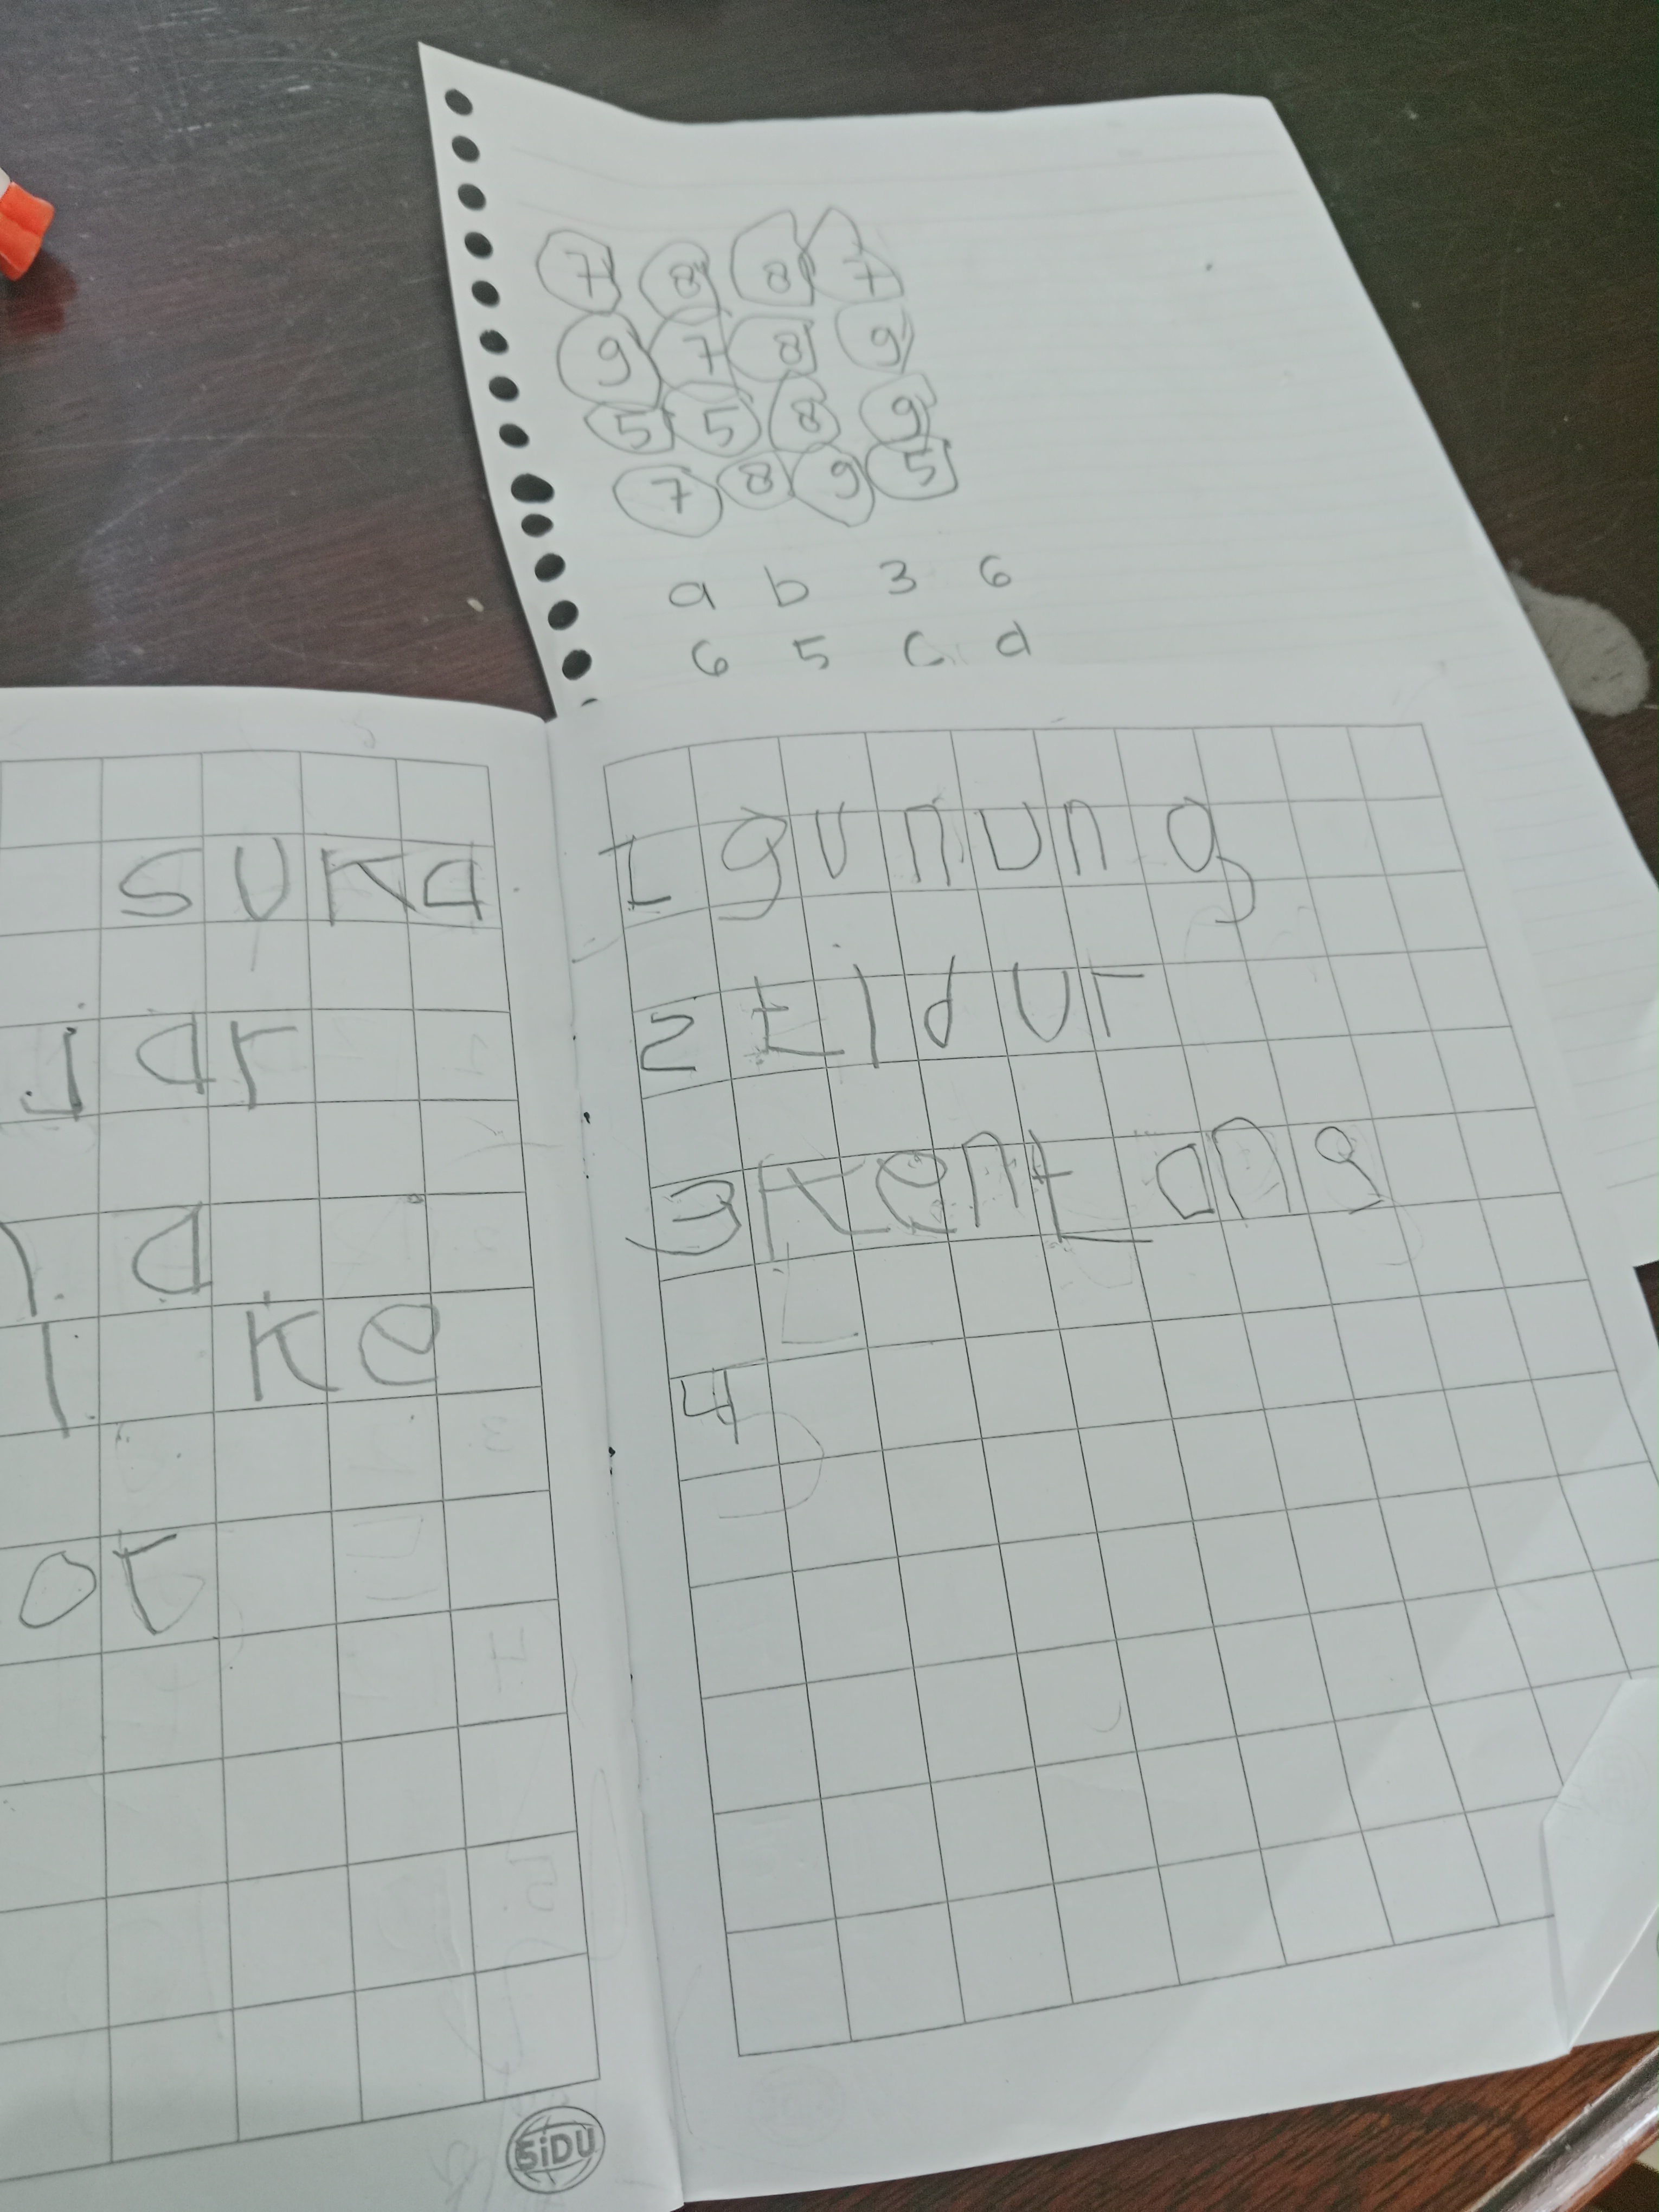 7 8 8 7
9 7 8 9
5 5 8 9
7 8 9 5
a b 3 6
6 5 c d
suka
jar
a
ke
ot
1 gunung
2 tidur
3 kentang
4
SiDU